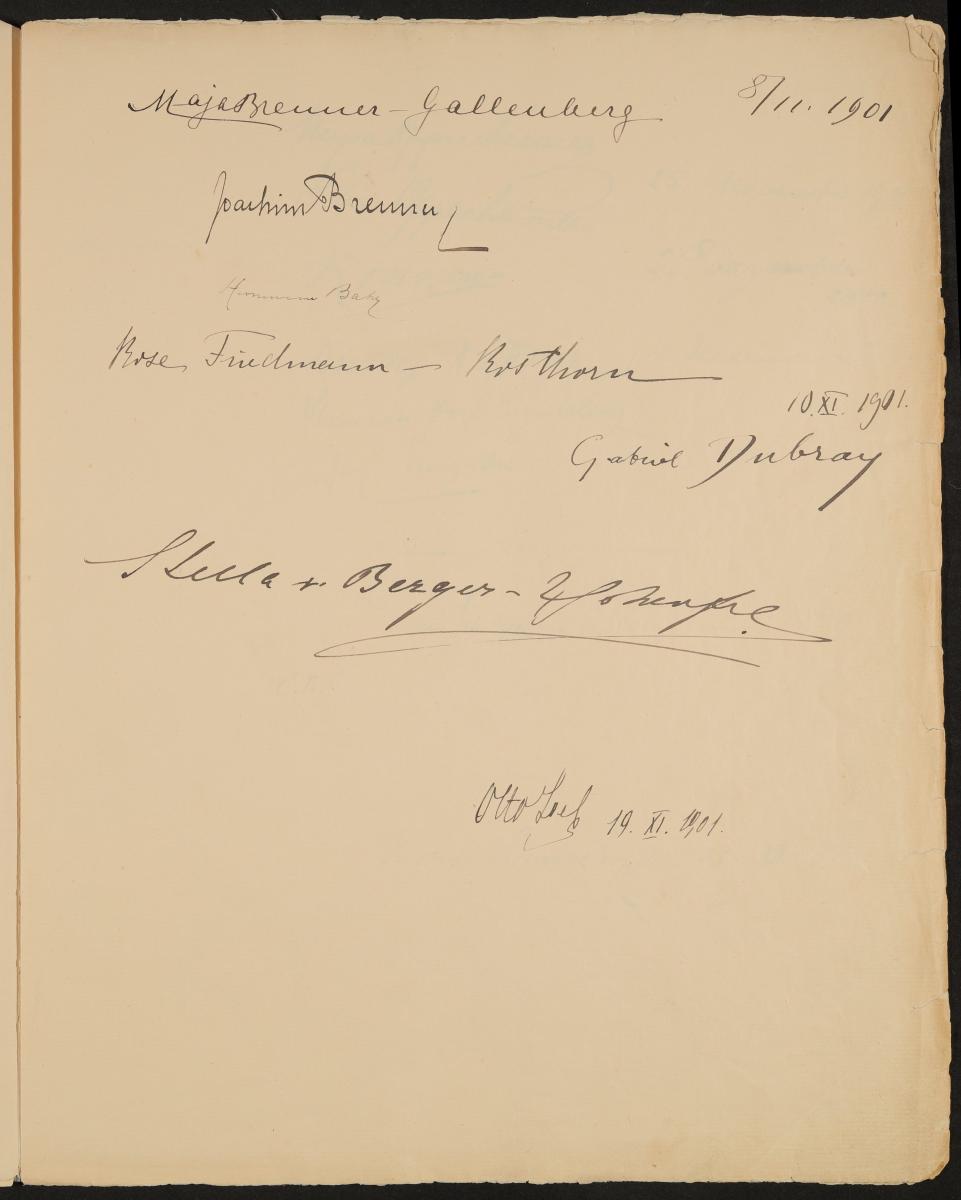 Maja Brenner - Gallenberg 8/11. 1901
Joachim Brenner
Rose Friedmann - Rosthorn
10. XI. 1901.
Gabriel Dubray
Stella v. Berger - Hohenfels.
Otto 19. XI. 1901.